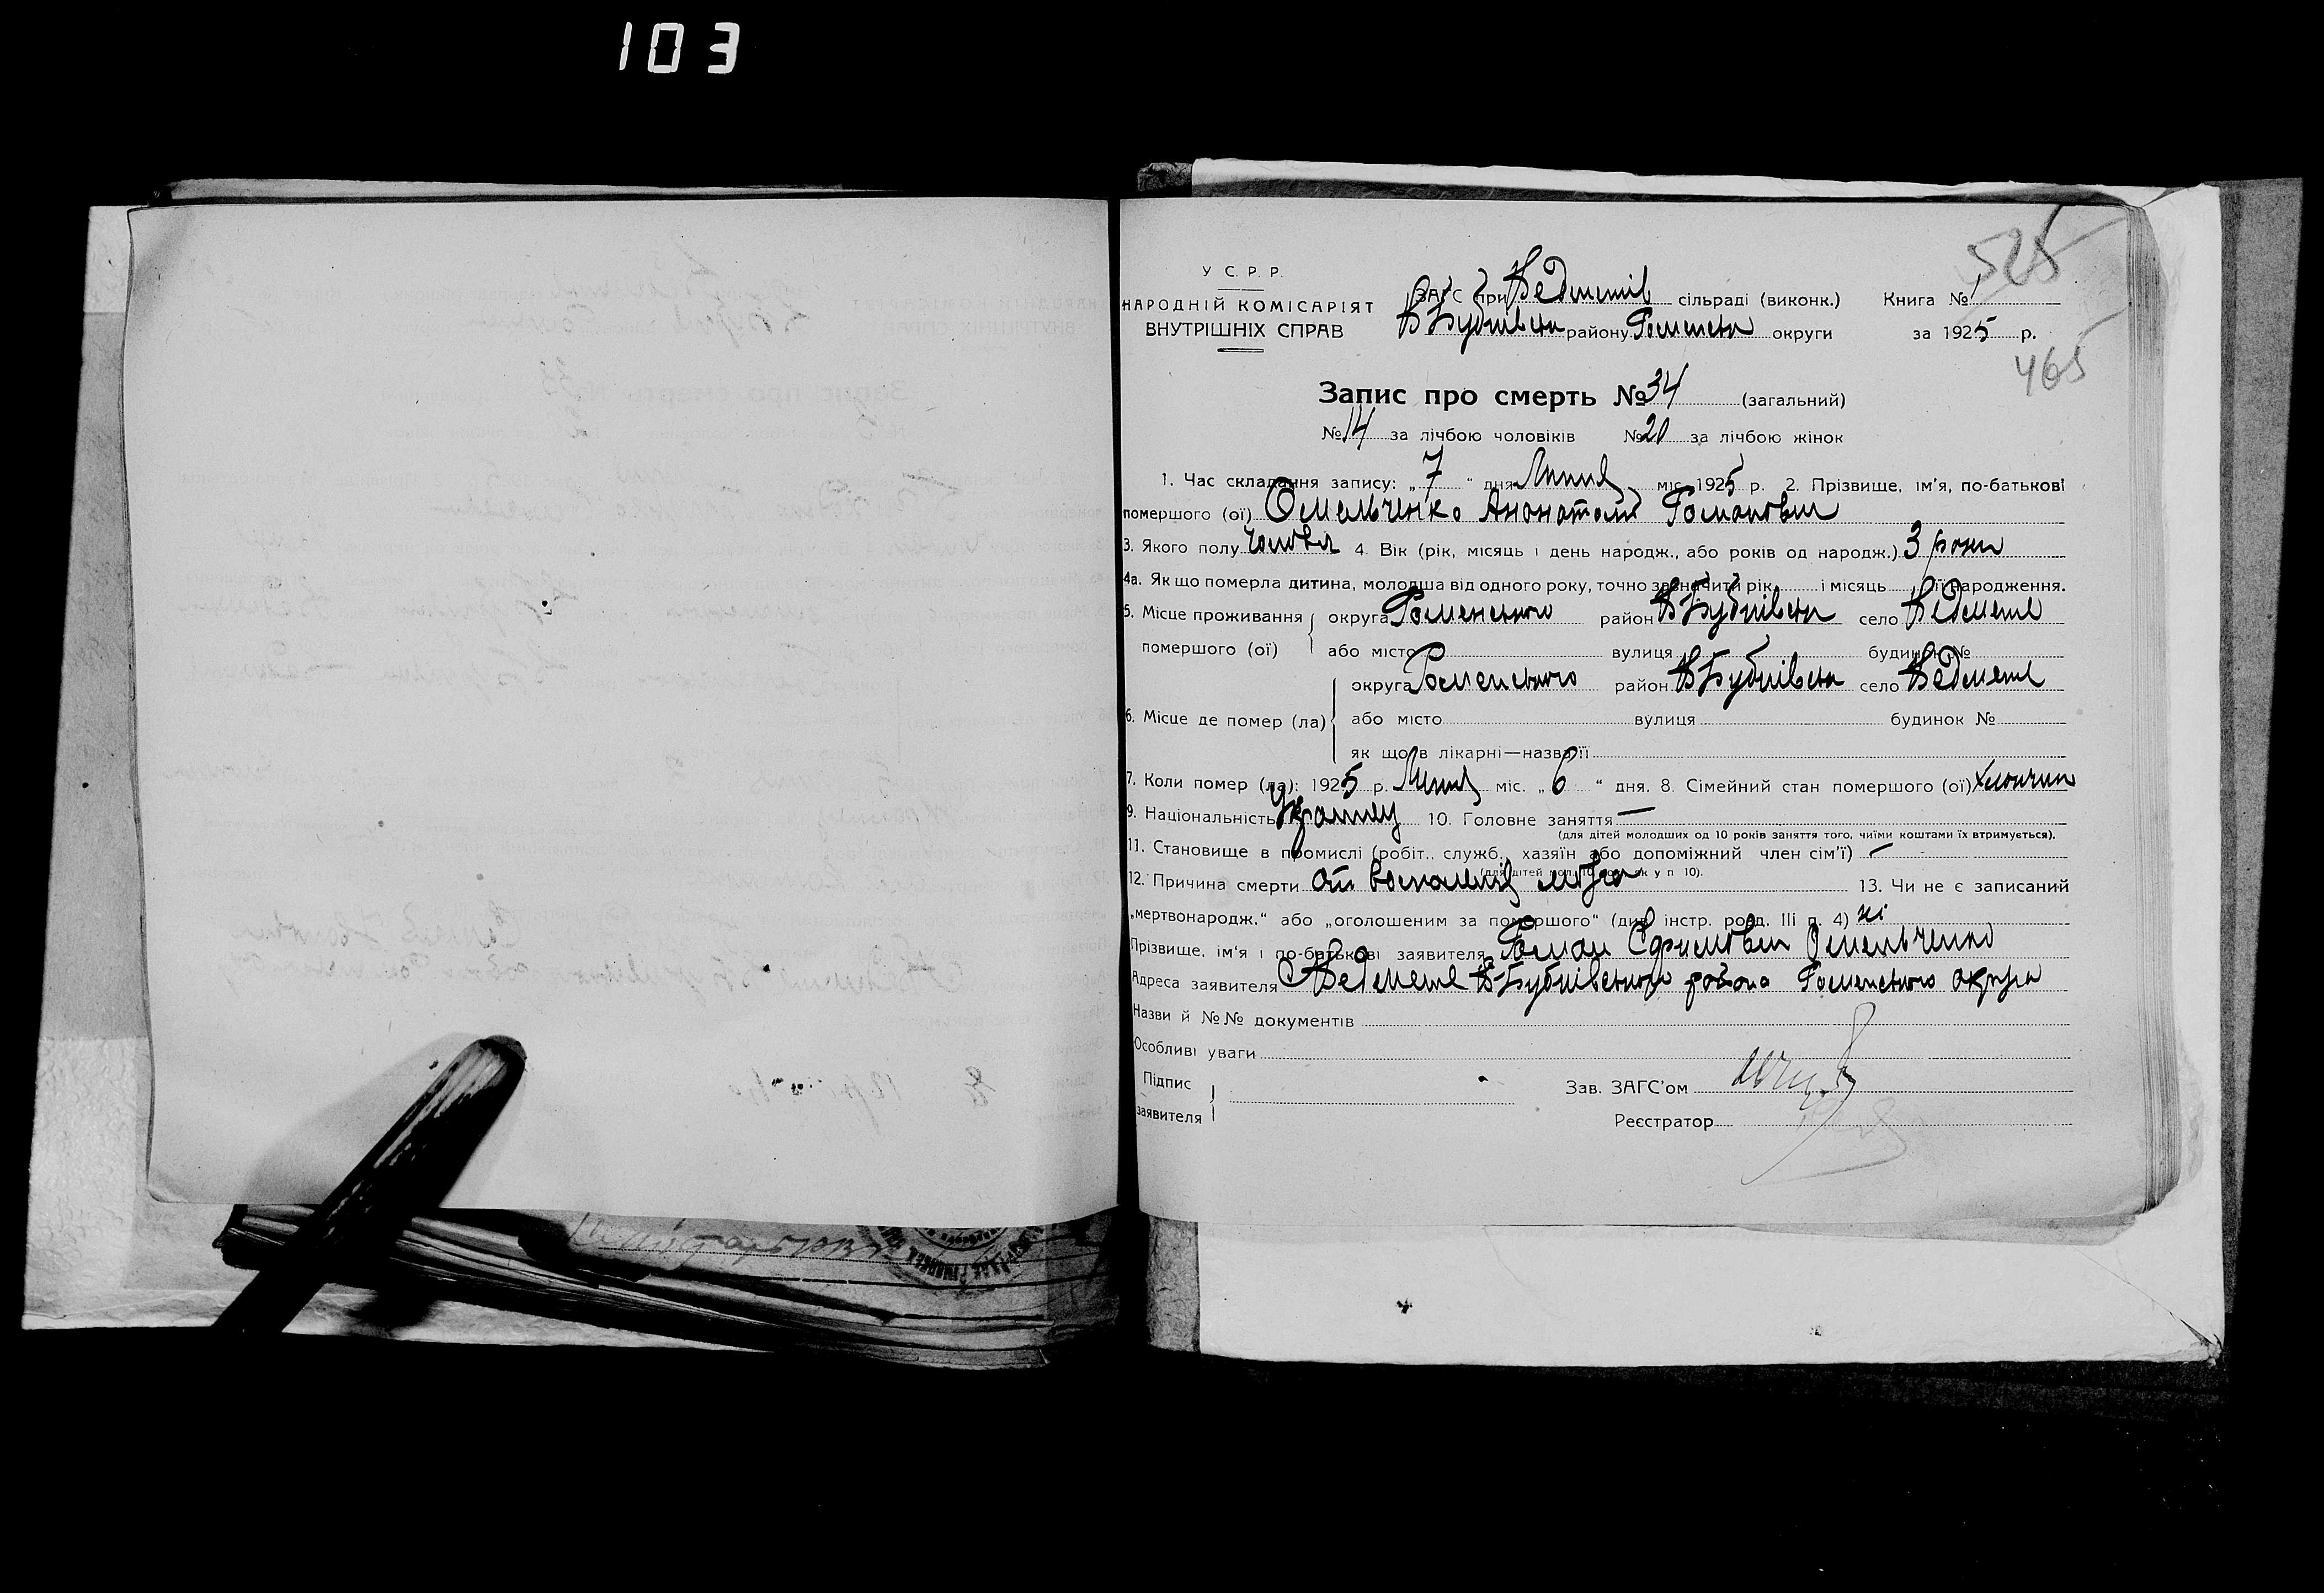 103
525
У С. Р. Р.
НАРОДНІЙ КОМІСАРІЯТ
ВНУТРІШНІХ СПРАВ
ЗАГС при Ведмеців сільраді (виконк.) Книга № 1
В Бубнівськ району Роменськ округи за 1925 р.
465
Запис про смерть № 34 (загальний)
№ 14 за лічбою чоловіків № 20 за лічбою жінок
1. Час складання запису: „ 7 “ дня Липня міс. 1925 р. 2. Прізвище, ім'я, по-батькові
помершого (ої) Омельченко Анонатолій Романович
3. Якого полу 4. Вік (рік, місяць і день народж., або років од народж.) 3 роки
4а. Як що померла дитина, молодша від одного року, точно зазначити рік і місяць її народження.
5. Місце проживання округа Роменського район В Бубнівськ село Ведмеже
помершого (ої) або місто вулиця будинок №
округа Роменського район В Бубнівськ село Ведмеже
6. Місце де помер (ла) або місто вулиця будинок №
як що в лікарні—назва її
7. Коли помер (ла): 1925 р. Липня міс. „ 6 “ дня. 8. Сімейний стан помершого (ої) хлопчик
9. Національність 10. Головне заняття —
(для дітей молодших од 10 років заняття того, чиїми коштами їх втримується).
11. Становище в промислі (робіт., служб., хазяїн або допоміжний член сім'ї) —
(для дітей мол. 10 рок. як у п 10).
12. Причина смерти от воспаленія мозга 13. Чи не є записаний
„мертвонародж.“ або „оголошеним за помершого“ (див. інстр. розд. III п. 4) ні
Прізвище, ім'я і по-батькові заявителя Роман Єфимович Омельченко
Адреса заявителя С Ведмеже В-Бубнівського района Роменського округа
Назви й №№ документів
Особливі уваги
Підпис
заявителя
Зав. ЗАГС'ом
Реєстратор